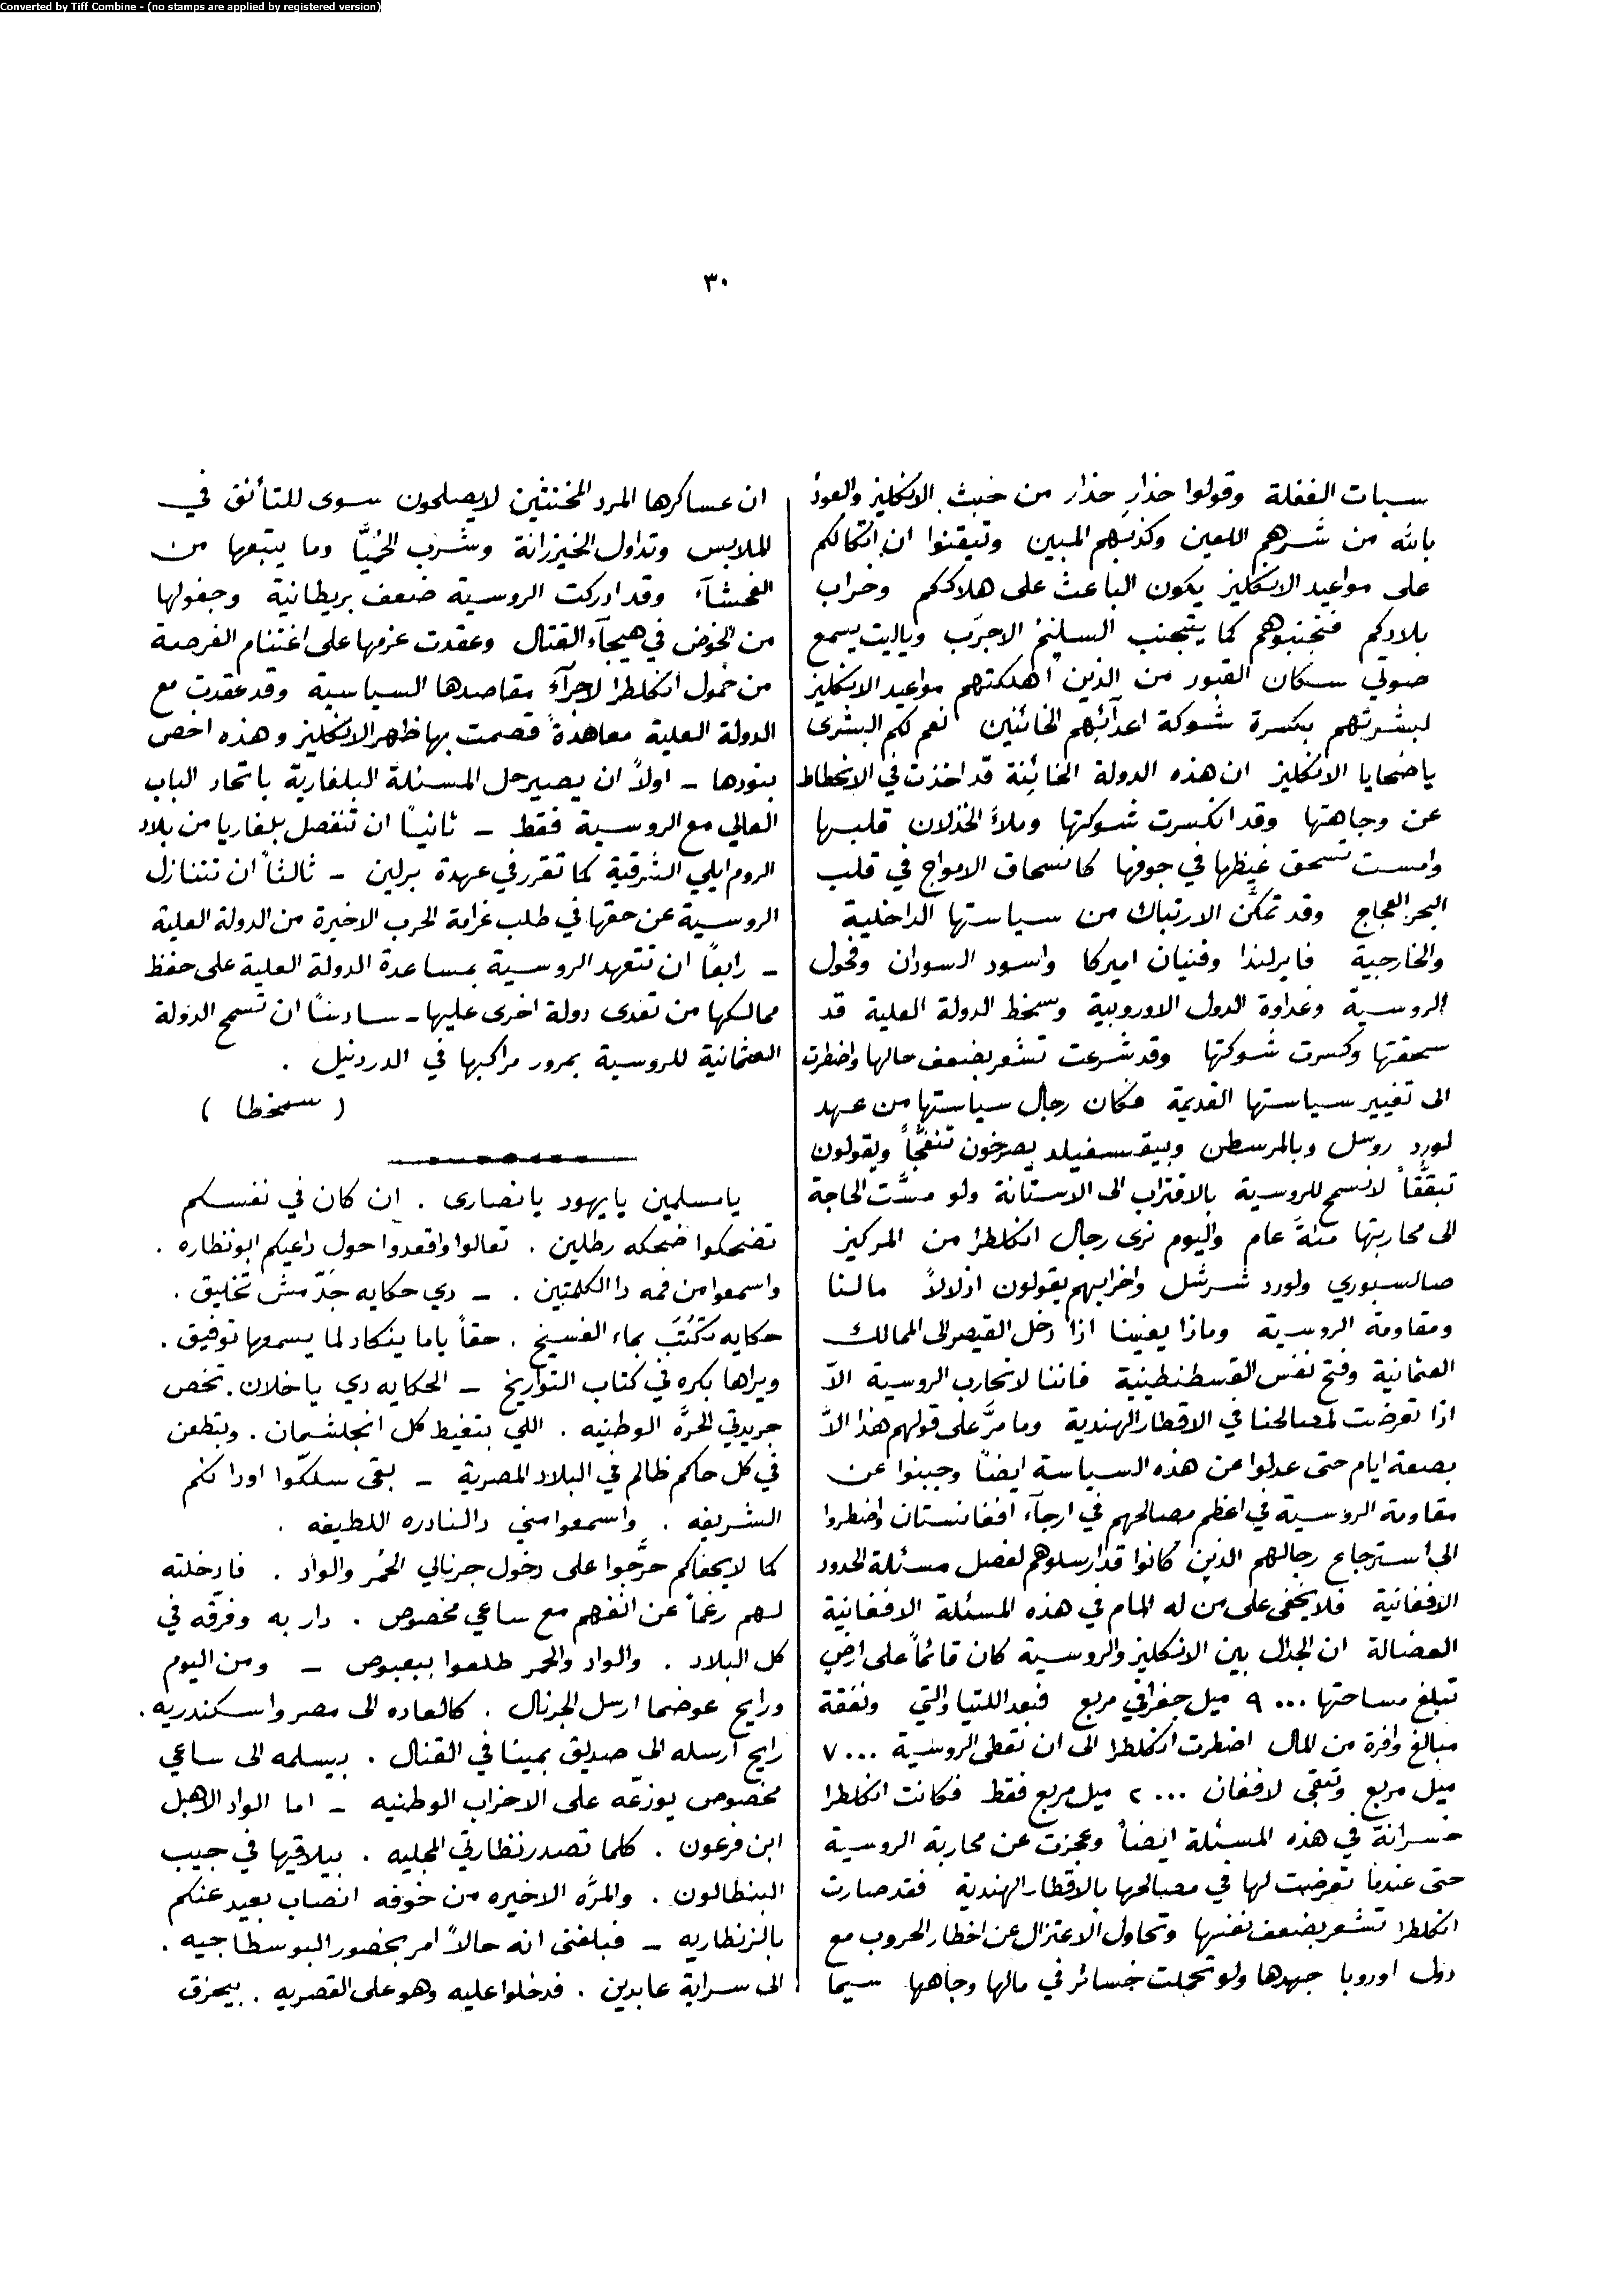 Converted by Tiff Combine - (no stamps are applied by registered version)
٣٠
سبات الغفلة وقولوا حذارِ حذار من خبث الانكليز والعوذ
بالله من شرهم اللعين وكذبهم المبين وتيقنوا ان اتكالكم
على مواعيد الانكليز يكون الباعث على هلاككم وخراب
بلادكم فتجنبوهم كما يتجنب السليم الاجرب وياليت يسمع
صوتي سكان القبور من الذين اهلكتهم مواعيد الانكليز
لبشرتهم بكسرة شوكة اعدآئهم الخائنين نعم لكم البشرى
ياضحايا الانكليز ان هذه الدولة الخائنة قد اخذت في الانحطاط
عن وجاهتها وقد انكسرت شوكتها وملأ الخذلان قلبها
وامست تسحق غيظها في جوفها كانسحاق الامواج في قلب
البحر العجاج وقد تمكَّن الارتباك من سياستها الداخلية
والخارجية فايرلندا وفنيان اميركا واسود السودان وفحول
الروسية وعداوة الدول الاوروبية وسخط الدولة العلية قد
سحقتها وكسرت شوكتها وقد شرعت تشعر بضعف حالها واضطرت
الى تغيير سياستها القديمة فكان رجال سياستها من عهد
لورد روسل وبالمرسطن وبيقسفيلد يصرخون تنفجًّا ويقولون
تبققًّا لانسمح للروسية بالاقتراب الى الاستانة ولو مسَّت الحاجة
الى محاربتها مئة عام واليوم نرى رجال انكلطرا من المركيز
صالسبوري ولورد شرشل واضرابهم يقولون اذلالاً مالنا
ومقاومة الروسية وماذا يعنينا اذا دخل القيصر الى الممالك
العثمانية وفتح نفس القسطنطينية فاننا لا نحارب الروسية الاَّ
اذا تعرضت لمصالحنا في الاقطار الهندية ومامرَّ على قولهم هذا الاَّ
بضعة ايام حتى عدلوا عن هذه السياسة ايضاً وجبنوا عن
مقاومة الروسية في اعظم مصالحهم في ارجآء افغانستان واضطروا
الى استرجاع رجالهم الذين كانوا قد ارسلوهم لفصل مسئلة الحدود
الافغانية فلا يخفى على من له المام في هذه المسئلة الافغانية
العضالة ان الجدال بين الانكليز والروسية كان قائماً على ارض
تبلغ مساحتها ٩٠٠٠ ميل جغرافي مربع فبعد اللتيا والتي ونفقة
مبالغ وافرة من المال اضطرت انكلطرا الى ان تعطى الروسية ٧٠٠٠
ميل مربع وتبقى لافغان ٢٠٠٠ ميل مربع فقط فكانت انكلطرا
خسرانة في هذه المسئلة ايضاً وعجزت عن محاربة الروسية
حتى عندما تعرضت لها في مصالحها بالاقطار الهندية فقد صارت
انكلطرا تشعر بضعف نفسها وتحاول الاعتزال عن اخطار الحروب مع
دول اوروبا جهدها ولو تحملت خسائر في مالها وجاهها سيما
ان عساكرها المرد المخنثين لايصلحون سوى للتأنق في
الملابس وتداول الخيزرانة وشرب الحُمَيَّا وما يتبعها من
الفحشآء وقد ادركت الروسية ضعف بريطانية وجفولها
من الخوض في هيجآء القتال وعقدت عزمها على اغتنام الفرصة
من خمول انكلطرا لاجرآء مقاصدها السياسية وقد عقدت مع
الدولة العلية معاهدةً قصمت بها ظهر الانكليز وهذه اخص
بنودها – اولاً ان يصير حل المسئلة البلغارية باتحاد الباب
العالي مع الروسية فقط – ثانياً ان تنفصل بلغاريا من بلاد
الروم ايلي الشرقية كما تقرر في عهدة برلين – ثالثاً ان تتنازل
الروسية عن حقها في طلب غرامة الحرب الاخيرة من الدولة العلية
– رابعاً ان تتعهد الروسية بمساعدة الدولة العلية على حفظ
ممالكها من تعدى دولة اخرى عليها – سادساً ان تسمح الدولة
العثمانية للروسية بمرور مراكبها في الدردنيل .
( سمخطا )
يامسلمين يايهود يانصارى . إن كان في نفسكم
تضحكوا ضحكه رطلين . تعالوا واقعدوا حول داعيكم ابونظاره .
واسمعوا من فمه دا الكلمتين . – دي حكايه جَدّ مش تخليق .
حكايه تكتَب بماء الفسيخ . حقاً ياما ينكاد لما يسمعها توفيق .
ويراها بكره في كتاب التواريخ – الحكايه دي ياخلان . تخص
جريدتي الحرَّه الوطنيه . اللي بتغيط كل انجلشمان . وبتطعن
في كل حاكم ظالم في البلاد المصرية – بقى سلكّوا اودانكم
الشريفه . واسمعوا مني دالنادره اللطيفه .
كما لايخفاكم حرَّجوا على دخول جرنالي الحُمر والواد . فادخلته
لهم رغماً عن انفهم مع ساعي مخصوص . دار به وفرقه في
كل البلاد . والواد والحمر طلعوا ببعبوص – ومن اليوم
ورايح عوضما ارسل الجرنال . كالعاده الى مصر واسكندريه .
رايح ارسله الى صديق بمينا في القنال . بيسلمه الى ساعي
مخصوص يوزعّه على الاحزاب الوطنيه – اما الواد الاهبل
ابن فرعون . كلما تصدر نظارتي المجليه . بيلاقيها في جيب
البنطالون . والمرَّه الاخيره من خوفه انصاب بعيد عنكم
بالزنطاريه – فبلغنى انه حالاً امر بحضور البوسطاجيه .
الى سراية عابدين . فدخلوا عليه وهو على القصريه . بيحزق